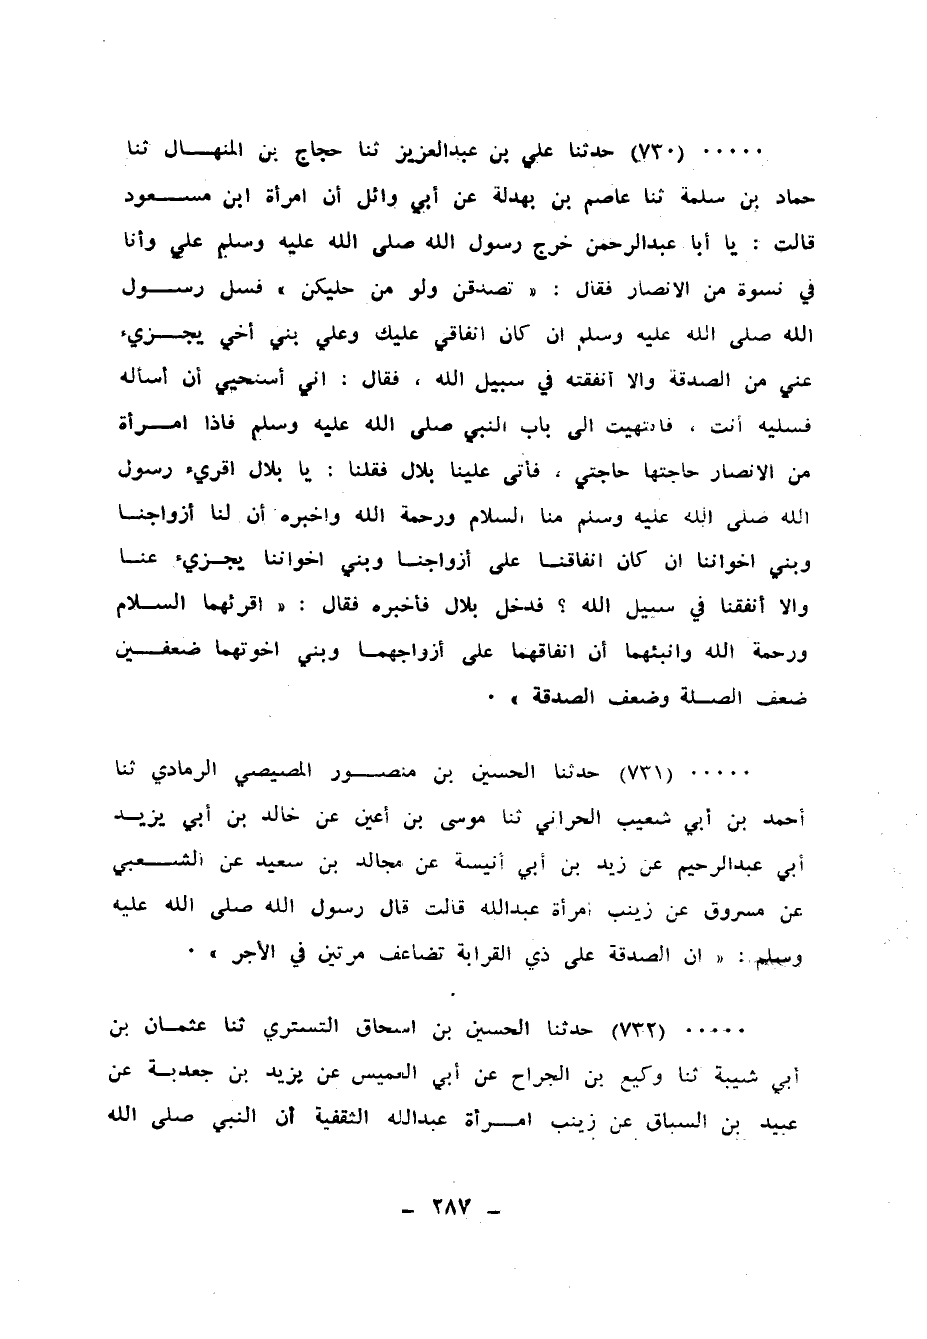 ٠٠٠٠٠ (٧٣٠) حدثنا علي بن عبدالعزيز ثنا حجاج بن المنهــال ثنا
حماد بن سلمة ثنا عاصم بن بهدلة عن أبي وائل أن امرأة ابن مســعود
قالت : يا أبا عبدالرحمن خرج رسول الله صلى الله عليه وسلم علي وأنا
في نسوة من الانصار فقال : « تصدقن ولو من حليكن » فسل رســول
الله صلى الله عليه وسلم ان كان انفاقي عليك وعلي بني أخي يجــزيء
عني من الصدقة والا أنفقته في سبيل الله ، فقال : اني أستحيي أن أسأله
فسليه أنت ، فانتهيت الى باب النبي صلى الله عليه وسلم فاذا امــرأة
من الانصار حاجتها حاجتي ، فأتى علينا بلال فقلنا : يا بلال اقريء رسول
الله صلى الله عليه وسلم منا السلام ورحمة الله واخبره أن لنا أزواجنــا
وبني اخواننا ان كان انفاقنــا على أزواجنــا وبني اخواننا يجــزيء عنــا
والا أنفقنا في سبيل الله ؟ فدخل بلال فأخبره فقال : « اقرئهما الســلام
ورحمة الله وانبئهما أن انفاقهما على أزواجهمــا وبني اخوتهما ضعفــين
ضعف الصــلة وضعف الصدقة » ٠
٠٠٠٠٠ (٧٣١) حدثنا الحسين بن منصــور المصيصي الرمادي ثنا
أحمد بن أبي شعيب الحراني ثنا موسى بن أعين عن خالد بن أبي يزيــد
أبي عبدالرحيم عن زيد بن أبي أنيسة عن مجالد بن سعيد عن الشــعبي
عن مسروق عن زينب امرأة عبدالله قالت قال رسول الله صلى الله عليه
وسلم : « ان الصدقة على ذي القرابة تضاعف مرتين في الأجر » ٠
٠٠٠٠٠ (٧٣٢) حدثنا الحسين بن اسحاق التستري ثنا عثمــان بن
أبي شيبة ثنا وكيع بن الجراح عن أبي العميس عن يزيد بن جعدبــة عن
عبيد بن السباق عن زينب امــرأة عبدالله الثقفية أن النبي صلى الله
– ٢٨٧ –